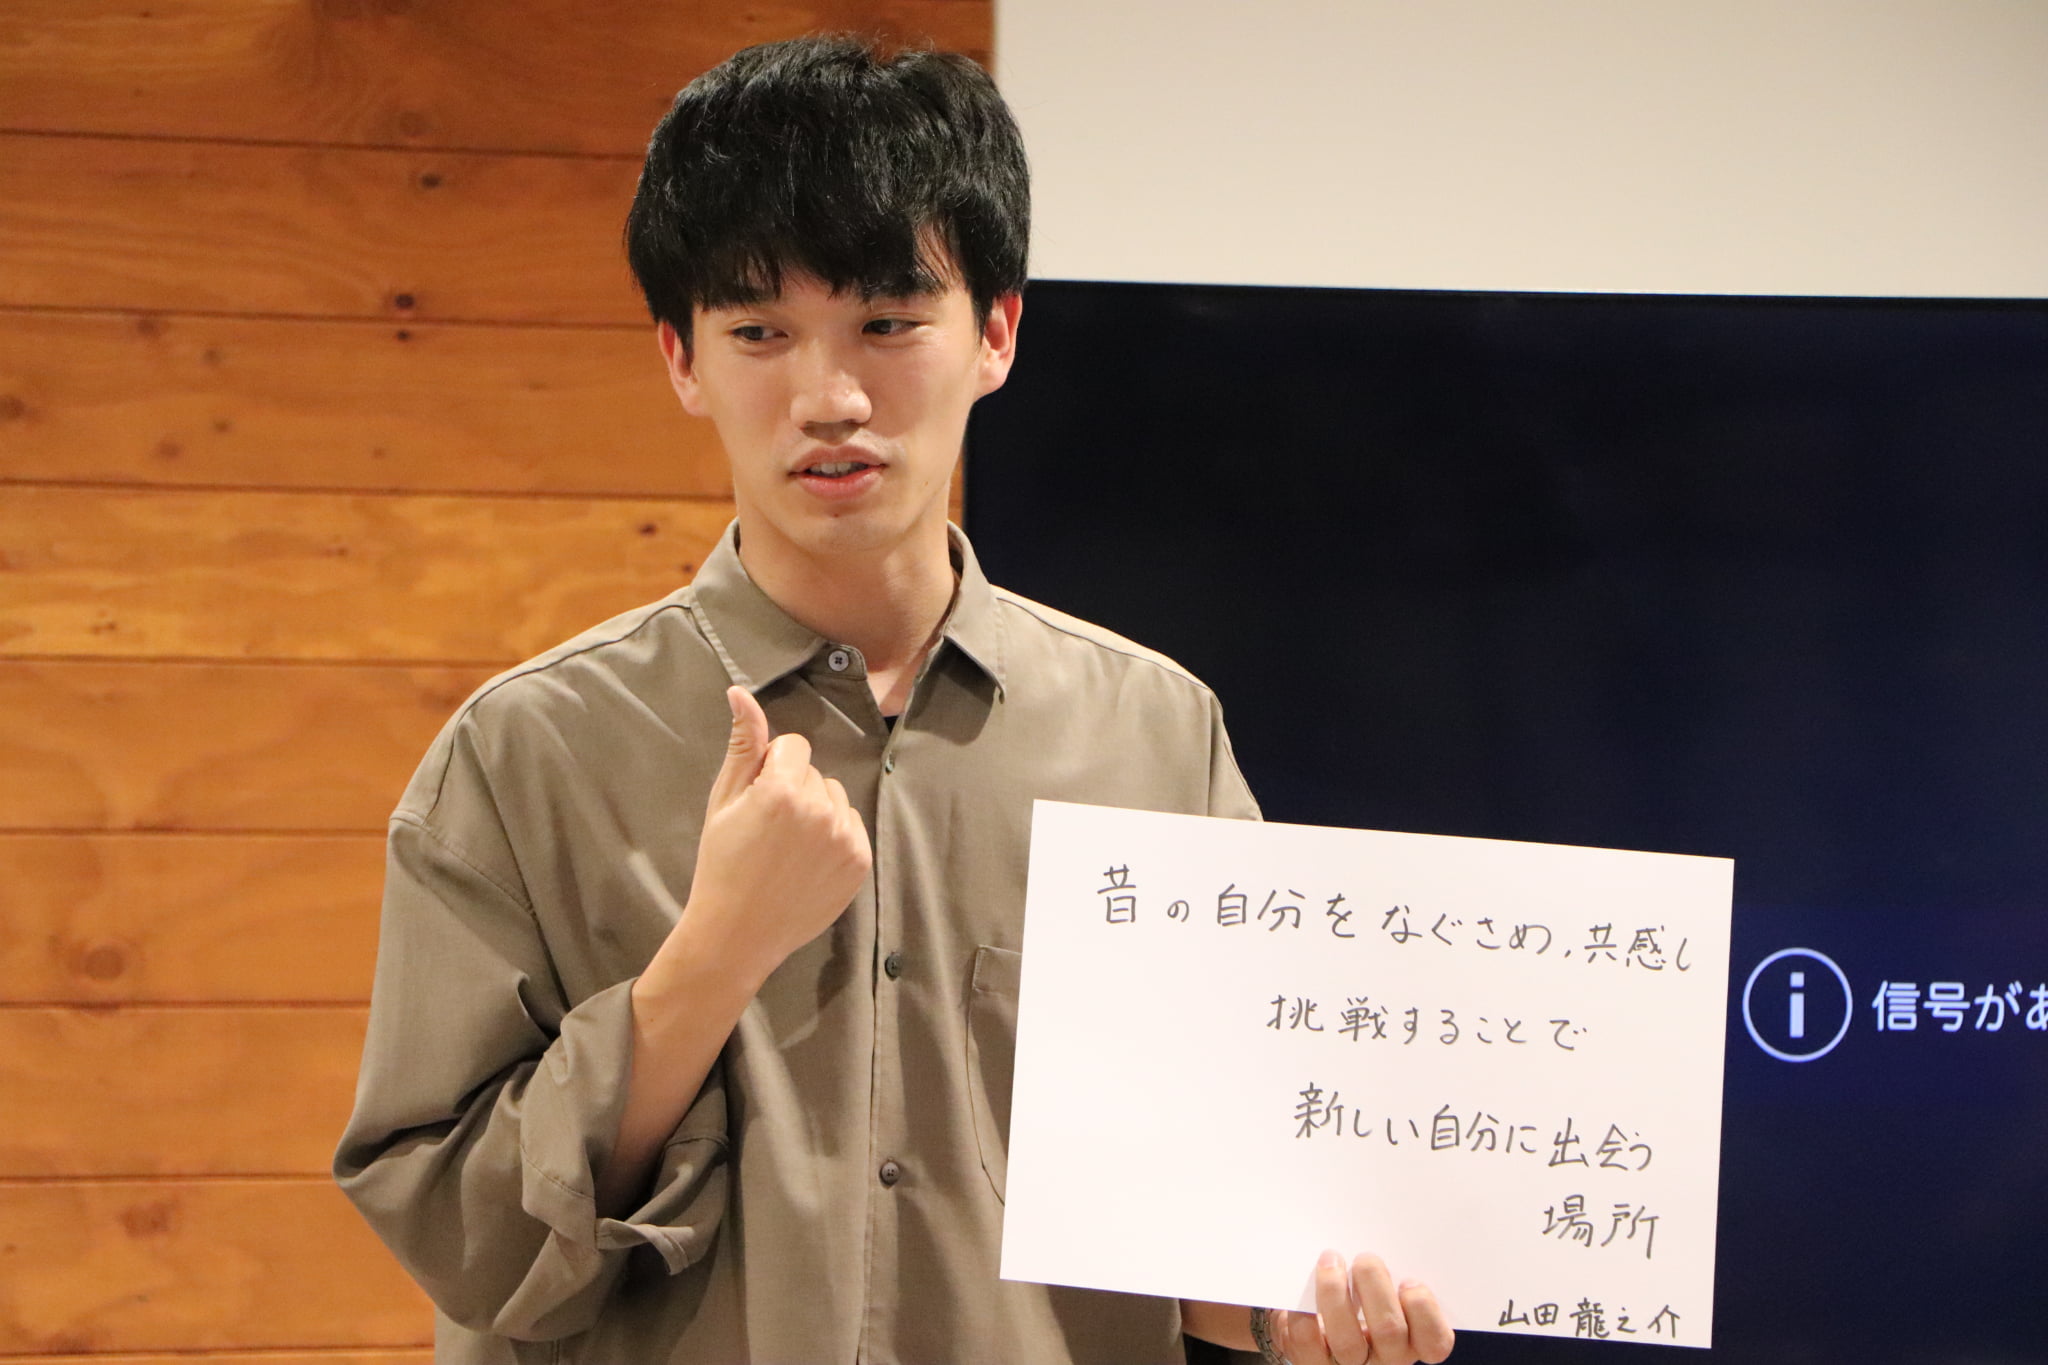 昔の自分をなぐさめ,共感し
挑戦することで
新しい自分に出会う
場所
山田龍之介
i 信号があ